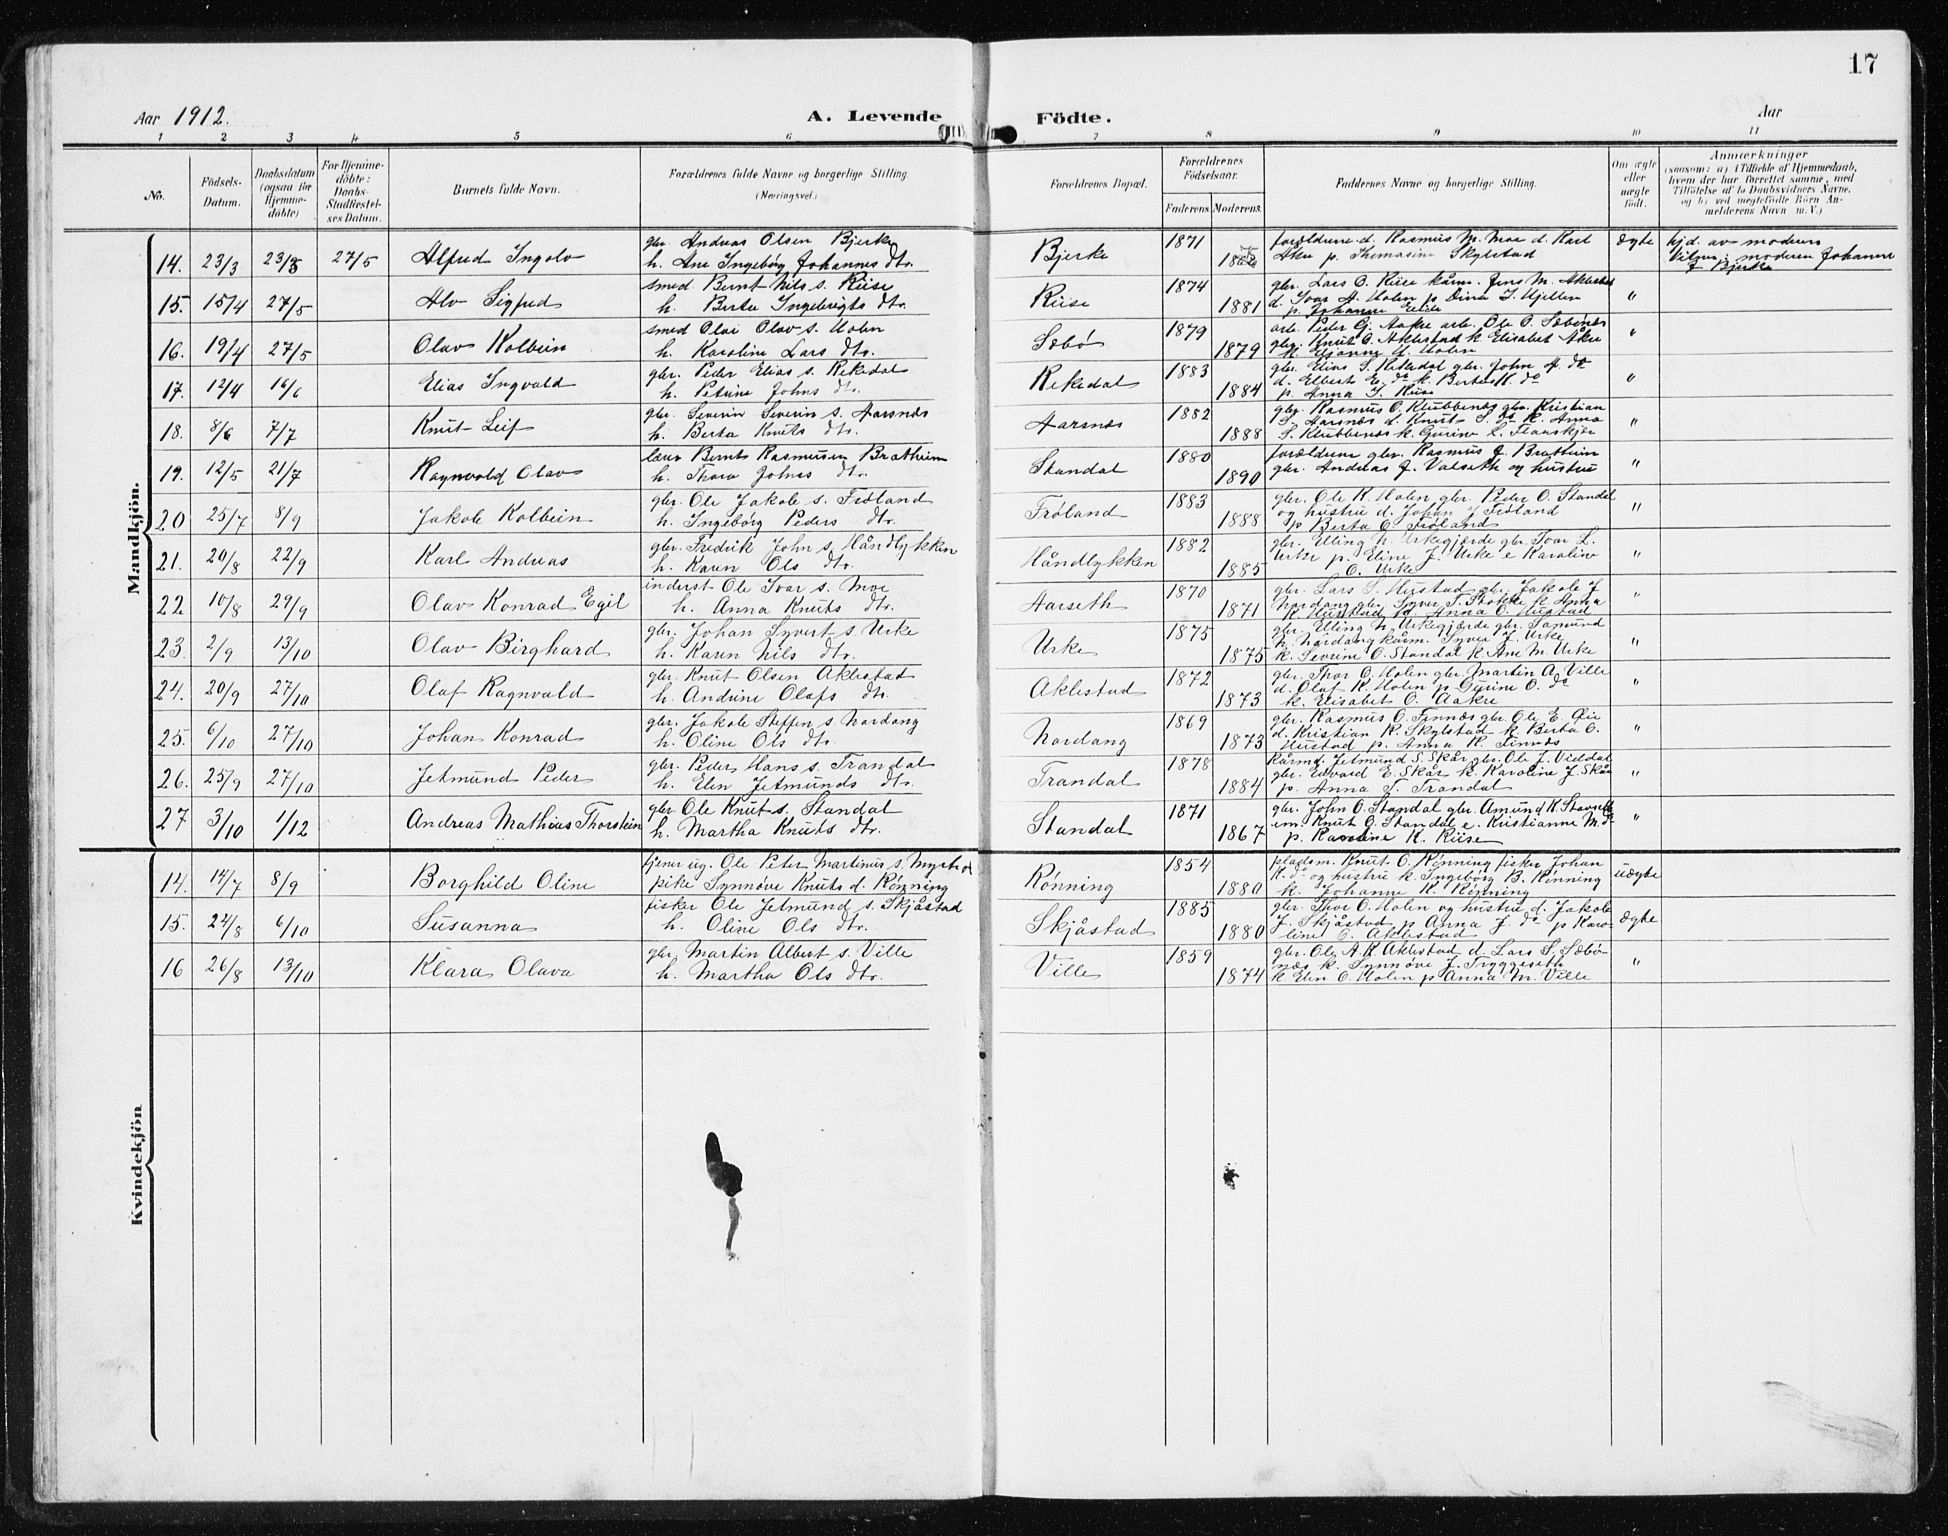 17
Aar 1912. A. Levende Födte. Aar
1 2 3 4 5 6 7 8 9 10 11
No. Födsels-Datum. Daabsdatum (ogsaa för Hjemmedöbte) For Hjemmedöbte: Daabs-Stadfestelses Datum. Barnets fulde Navn. Forældrenes fulde Navne og borgerlige Stilling. (Næringsvei.) Forældrenes Bopæl. Forældrenes Födselsaar. Faderens. Moderens. Faddernes Navne og borgerlige Stilling. Om ægte eller uægte födt. Anmærkninger (saasom: a) i Tilfælde af Hjemmedaab, hvem der har forrettet samme, med Tilföielse af to Daabsvidners Navne, og b) ved uegtefödte Börn Anmelderens Navn m. V.)
Mandkjön.
14. 23/3 23/3 27/5 Alfred Ingolv gbr. Andreas Olsen Bjerke
h. Ane Ingebørg Johannes dtr. Bjerke 1871 forældrene d. Rasmus M. Moe d. Karl
Aker p. Thomasine Skylstad ægte hjd. av moderens
moderen Johanne
J Bjerke
15. 15/4 27/5 Alv Sigfred smed Bernt Nils s. Riise
h. Berte Ingebrigts dtr. Riise 1874 1881 gbr. Lars O. Riise kårm. Jens M. Aklestad
d. Ivar A. Holen p. Dina J. Hjellen
p. Johanne Eide "
16. 19/4 27/5 Olav Kolbein smed Olai Olav s. Holen
h. Karoline Lars dtr. Sæbø 1879 1879 arb. Peder G. Aakre arb. Ole O. Sæbønes
gbr. Knut O. Aklestad k Elisabet Akre
k. H. Holen "
17. 12/4 16/6 Elias Ingvald gbr. Peder Elias s. Rekedal
h. Petrine Johns dtr. Rekedal 1883 1884 gbr. Elias S. Rekedal gbr. John A. do
d. Elbert E. do k. Berte K. do
p. Anna J. Riise "
18. 8/6 7/7 Knut Leif gbr. Severin Severin s. Aarsnes
h. Berta Knuts dtr. Aarsnes 1882 1888 gbr. Rasmus O. Klubbenes gbr. Kristian
S. Aarsnes d. Knut S. do k. Anna
S. Klubbenes k. Gurine L. Flauskjer "
19. 12/5 21/7 Ragnvald Olav lærer Bernt Rasmussen Brattheim
h. Thora Johns dtr. Standal 1880 1890 forældrene gbr. Rasmus J. Brattheim
gbr. Andreas J. Valseth og hustru "
20 25/7 8/9 Jakob Kolbein gbr. Ole Jakob s. Frøland
h. Ingebørg Peders dtr. Frøland 1883 1888 gbr. Ole K. Holen gbr. Peder O. Standal
og hustru d. Johan J Frøland
p Berta O Frøland "
21. 20/8 22/9 Karl Andreas gbr. Fredrik John s. Håndlykken
h. Karen Ols dtr. Håndlykken 1882 1885 gbr. Elling N. Urkegjærde gbr. Ivar L.
Urke p. Eline J. Urke e Karoline
O. Urke "
22 10/8 29/9 Olav Konrad Egil inderst Ole Ivar s. Moe
h. Anna Knuts dtr. Aarseth 1870 1871 gbr. Lars S. Hustad gbr. Jakob J
Nordang gbr. Syver T. Stokke k Anna
K. Hustad k. Anna O. Hustad "
23. 2/9 13/10 Olav Birghard gbr. Johan Syvert s. Urke
h. Karen Nils dtr. Urke 1875 1875 gbr. Elling N. Urkegjærde gbr. Samund
N. Nordang kårm. Syver J. Urke
k. Severine O. Standal k Ane M. Urke "
24. 20/9 27/10 Olaf Ragnvald gbr. Knut Olsen Aklestad
h. Andrine Olafs dtr. Aklestad 1872 1873 gbr. Thor O. Holen gbr. Martin A. Ville
d. Olaf K. Holen p Gurine O. do
k. Elisabet O. Aakre "
25. 6/10 27/10 Johan Konrad gbr. Jakob Steffen s. Nordang
h. Oline Ols dtr. Nordang 1869 1873 gbr. Rasmus O. Finnes gbr. Ole E. Øie
d. Kristian K. Skylstad k. Berta O.
Hustad p. Anna K. Finnes "
26. 25/9 27/10 Jetmund Peder gbr. Peder Hans s. Trandal
h. Elen Jetmunds dtr. Trandal 1878 1884 kårmd. Jetmund S. Skår gbr. Ole J. Viddal
gbr. Edvard E. Skår k. Karoline J. Skår
p. Anna T. Trandal "
27 3/10 1/12 Andreas Mathias Thorstein gbr. Ole Knut s. Standal
h. Martha Knuts dtr. Standal 1871 1867 gbr. John O. Standal gbr. Amund K. Stavseth
em Knut O. Standal e. Kristianne M. do
p. Karoline K. Riise "
Kvindekjön
14. 14/7 8/9 Borghild Oline tjener ug. Ole Peter Martinus s. Myrhol
pike Synnøve Knuts d. Rønning Rønning 1854 1880 pladsm. Knut O. Rønning fisker Johan
K. do og hustru k. Ingebørg B. Rønning
k. Johanne K. Rønning uægte
15. 24/8 6/10 Susanna fisker Ole Jetmund s. Skjåstad
h. Oline Ols dtr. Skjåstad 1885 1880 gbr. Thor O. Holen og hustru d. Jakob
J. Skjåstad p Anna J. do p Karo-
line O. Aklestad ægte
16 26/8 13/10 Klara Olava gbr. Martin Albert s. Ville
h. Martha Ols dtr. Ville 1859 1874 gbr. Ole A K Aklestad d. Lars S. Sæbø-
nes k. Synnøve J. Tryggeseth
k Elen O. Holen p Anna M. Ville "